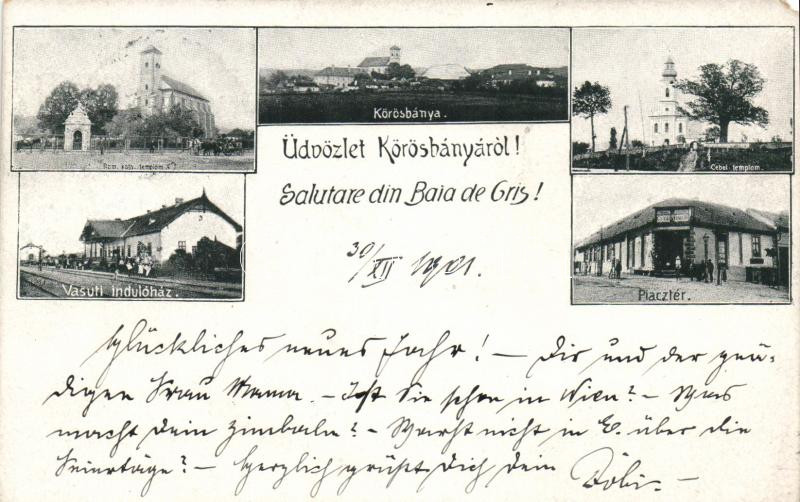 Rom. kath. templom.
Körösbánya.
Cebei templom.
Üdvözlet Körösbányáról!
Salutare din Baia de Criş!
Vasuti indulóház.
Piacztér.
30/XII 1901.
Glückliches neues Jahr! – Dir und der gnä-
digen Frau Mama. – Ist Sie schon in Wien? – Was
macht Dein Zimbaln? – Warst nicht in E. über die
Feiertage? – Herzlich grüßt Dich Dein